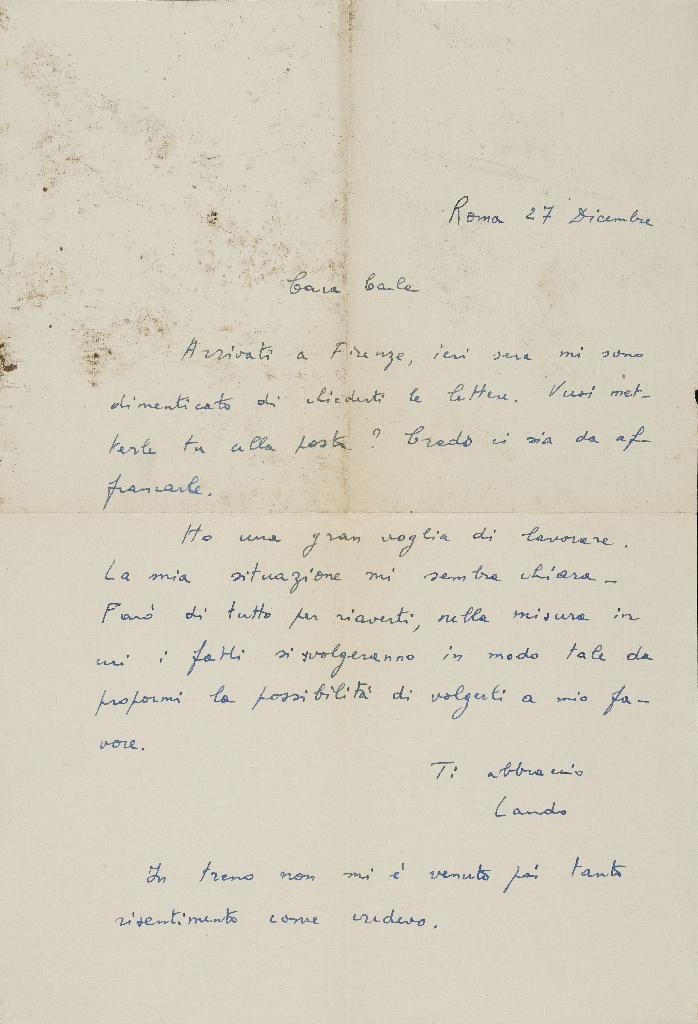 Roma 27 Dicembre
Cara Carla
Arrivati a Firenze, ieri sera mi sono
dimenticato di chiederti le lettere. Vuoi met-
terle tu alla posta? Credo ci sia da af-
francarle.
Ho una gran voglia di lavorare.
La mia situazione mi sembra chiara -
Farò di tutto per riaverti, nella misura in
cui i fatti si svolgeranno in modo tale da
propormi la possibilità di volgerli a mio fa-
vore.
Ti abbraccio
Lando
In treno non mi è venuto poi tanto
risentimento come credevo.